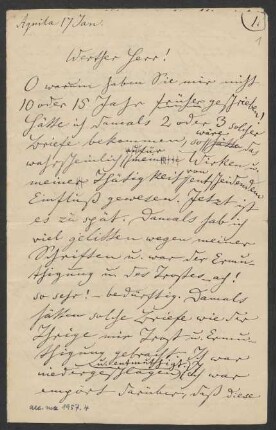 Aquila 17 Jan.
1.
1
Werther Herr!
O warum haben Sie mir nicht
10 oder 15 Jahr früher geschrieben!
Hätte ich damals 2 oder 3 solcher
Briefe bekommen, so wäre das
wahrscheinlich für mein Wirken u.
meiner Thätigkeit von entscheidendem
Einfluß gewesen. Jetzt ist
es zu spät. Damals hab ich
viel gelitten wegen meiner
Schriften u. war der Ermu-
thigung u. des Trostes ach!
so sehr! – bedürftig. Damals
hätten solche Briefe wie der
Ihrige mir Trost u. Ermu-
thigung gebracht. Ich war
niedergeschlagen u. entmuthigt; ich war
empört darüber, daß diese
acc. ms. 1987. 4